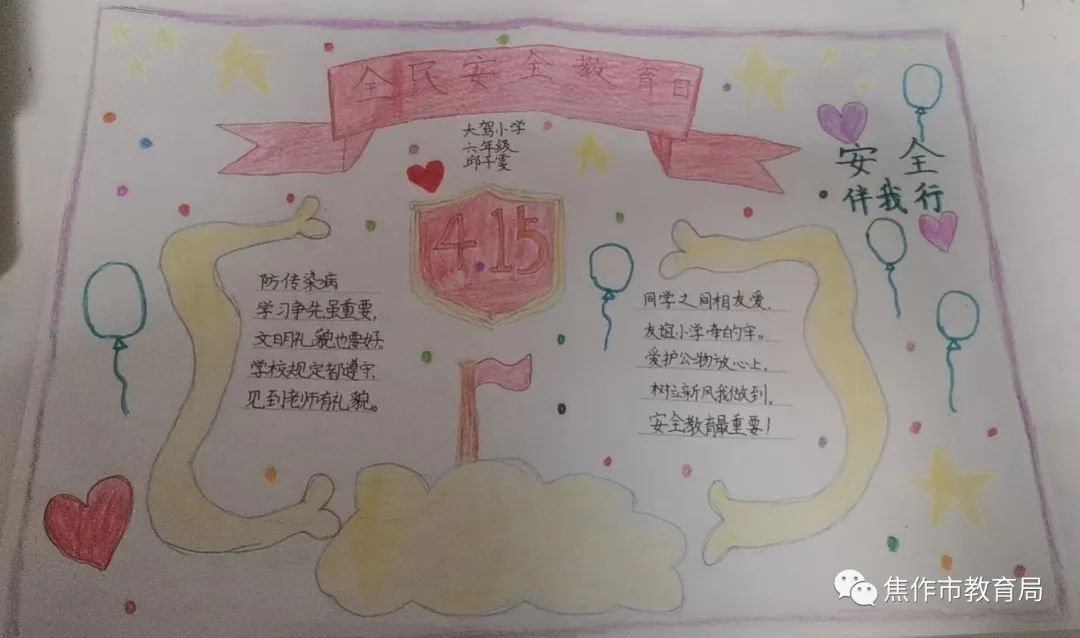 全民安全教育日
大驾小学
六年级
邱子雯
安全
伴我行
4.15
防传染病
学习争先虽重要,
文明礼貌也要好。
学校规定都遵守,
见到老师有礼貌。
同学之间相友爱,
友谊小学牢的牢。
爱护公物放心上,
树立新风我做到,
安全教育最重要!
焦作市教育局